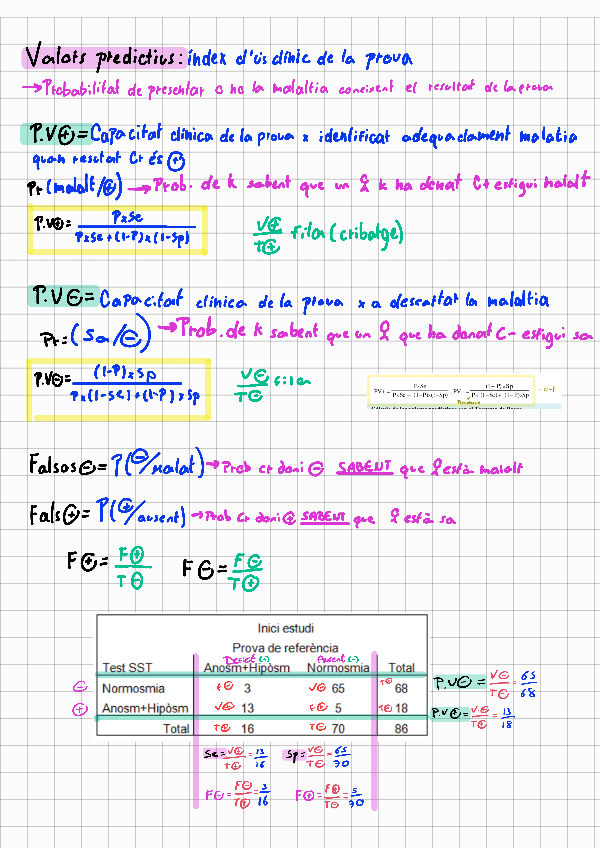 Valors predictius: índex d'ús clínic de la prova
→ Probabilitat de presentar o no la malaltia coneixent el resultat de la prova
P.V⊕ = Capacitat clínica de la prova x identificar adequadament malaltia
quan resultat Cr és ⊕
Pr (malalt/⊕) → Prob. de k sabent que un k ha donat C+ estigui malalt
P.V⊕ = PxSe / PxSe+(1-P)x(1-Sp)
V⊕/T⊕ fila (cribatge)
P.V⊖ = Capacitat clínica de la prova x a descartar la malaltia
Pr = (Sa/⊖) → Prob. de k sabent que un que ha donat C- estigui sa
P.V⊖ = (1-P)xSp / Px(1-Se)+(1-P)xSp
V⊖/T⊖ filera
Falsos ⊖ = P(⊖/malalt) → Prob cr doni ⊖ SABENT que està malalt
Fals ⊕ = P(⊕/ausent) → Prob Cr doni ⊕ SABENT que està sa
F⊕ = F⊕/T⊖ F⊖ = F⊖/T⊕
Inici estudi
Prova de referència
Test SST Anosm+Hipòsm Normosmia Total
⊖ Normosmia F⊖ 3 V⊖ 65 T⊖ 68
⊕ Anosm+Hipòsm V⊕ 13 F⊕ 5 T⊕ 18
Total T⊕ 16 T⊖ 70 86
P.V⊖ = V⊖/T⊖ = 65/68
P.V⊕ = V⊕/T⊕ = 13/18
Se = V⊕/T⊕ = 13/16 Sp = V⊖/T⊖ = 65/70
F⊖ = F⊖/T⊕ = 3/16 F⊕ = F⊕/T⊖ = 5/70